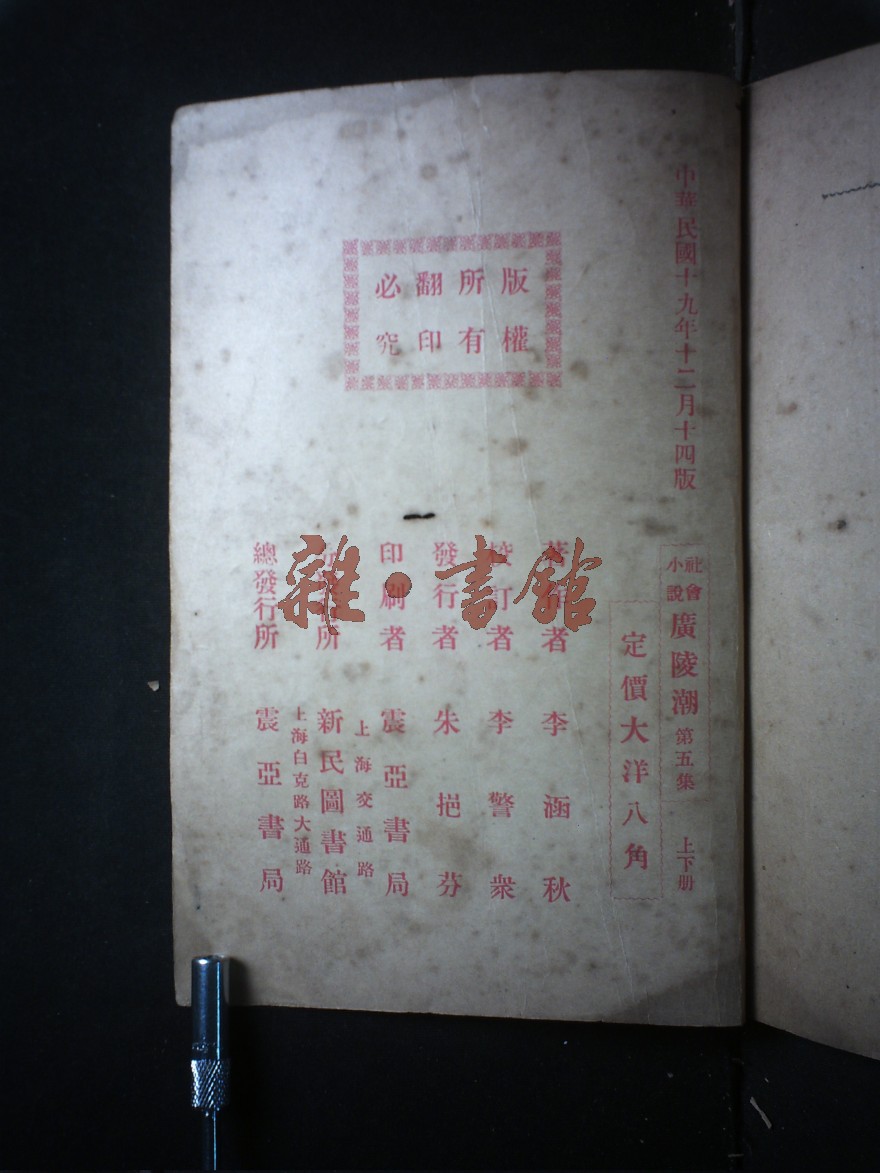 中華民國十九年十二月十四版
社會小說 廣陵潮 第五集 上下册
定價大洋八角
版權所有翻印必究
著作者 李涵秋
李警衆
發行者 朱挹芬
印刷者 震亞書局
上海交通路
新民圖書館
上海白克路大通路
總發行所 震亞書局
雜·書館